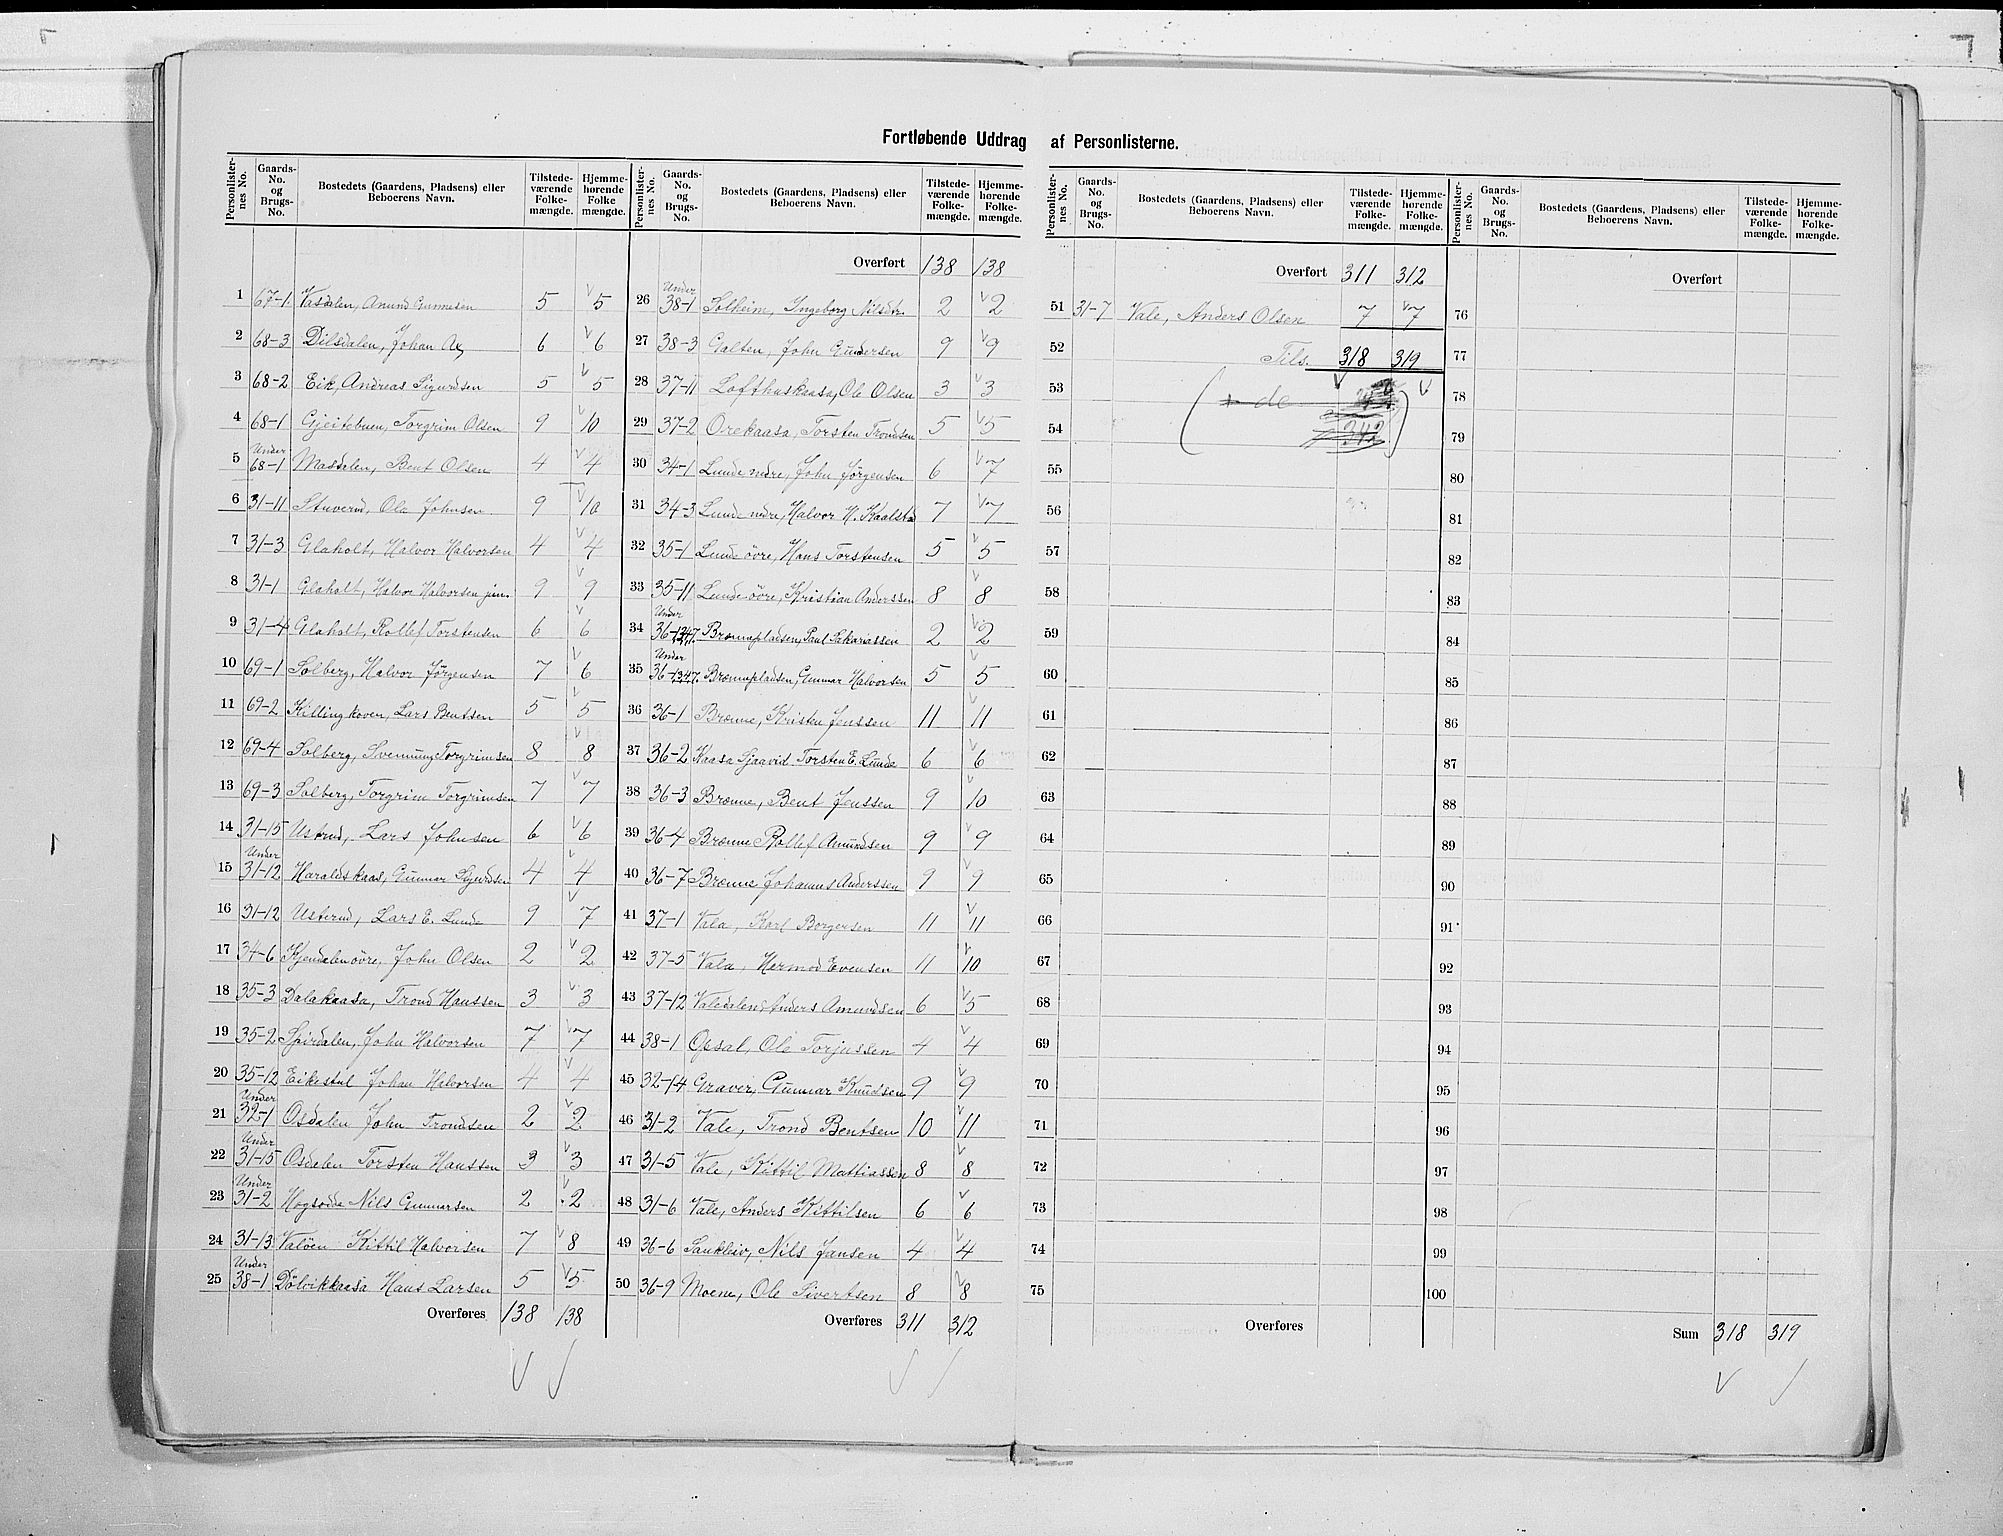 Fortløbende Uddrag af Personlisterne.
Personlister-nes No. Gaards-No. og Brugs-No. Bostedets (Gaardens, Pladsens) eller Beboerens Navn. Tilstede-værende Folke-mængde. Hjemme-hørende Folke mængde.
1 67-1 Vasdalen, Anund Gunnesen 5 5
2 68-3 Dilsdalen, Johan 6 6
3 68-2 Eik, Andreas Sigurdsen 5 5
4 68-1 Gjeitebuen, Torgrim Olsen 9 10
5 Under 68-1 Masdalen, Bent Olsen 4 4
6 31-11 Stuverud, Ole Johnsen 9 10
7 31-3 Glaholt, Halvor Halvorsen 4 4
8 31-1 Glaholt, Halvor Halvorsen jun. 9 9
9 31-4 Glaholt, Rollef Torstensen 6 6
10 69-1 Solberg, Halvor Jörgensen 7 6
11 69-2 Killingkoven, Lars Bentsen 5 5
12 69-4 Solberg, Svenung Torgrimsen 8 8
13 69-3 Solberg, Torgrim Torgrimsen 7 7
14 31-15 Usterud, Lars Johnsen 6 6
15 Under 31-12 Haraldskaas, Gunnar Sjurdsen 4 4
16 31-12 Usterud, Lars E. Lunde 9 7
17 34-6 Kjendalen övre, John Olsen 2 2
18 35-3 Dalakaasa, Trond Hanssen 3 3
19 35-2 Spirdalen, John Halvorsen 7 7
20 35-12 Eikestul Johan Halvorsen 4 4
21 Under 32-1 Osdalen John Trondsen 2 2
22 Under 31-15 Osdalen Torsten Hanssen 3 3
23 Under 31-2 Hogsodde Nils Gunnarsen 2 2
24 31-13 Valöen Kittil Halvorsen 7 8
25 Under 38-1 Dölvikkaasa Hans Larsen 5 5
Overføres 138 138
Personlister-nes No. Gaards-No. og Brugs-No. Bostedets (Gaardens, Pladsens) eller Beboerens Navn. Tilstede-værende Folke-mængde. Hjemme-hørende Folke-mængde.
Overført 138 138
26 Under 38-1 Solheim, Ingeborg Nilsdtr. 2 2
27 38-3 Galten, John Gundersen 9 9
28 37-11 Lofthuskaasa, Ole Olsen 3 3
29 37-2 Orekaasa, Torsten Trondsen 5 5
30 34-1 Lunde nedre, John Jörgensen 6 7
31 34-3 Lunde nedre, Halvor H. Kaalsta 7 7
32 35-1 Lunde övre, Hans Torstensen 5 5
33 35-11 Lunde övre, Kristian Anderssen 8 8
34 Under 36-1347. Brænnepladsen, Paul Sakariassen 2 2
35 Under 36-1347. Brænnepladsen, Gunnar Halvorsen 5 5
36 36-1 Brænne, Kristen Jenssen 11 11
37 36-2 Kaasa Sjaavid Torsten E. Lunde 6 6
38 36-3 Brænne, Bent Jenssen 9 10
39 36-4 Brænne Rollef Amundsen 9 9
40 36-7 Brænne Johannes Anderssen 9 9
41 37-1 Vala, Karl Borgersen 11 11
42 37-5 Vala, Hermod Evensen 11 10
43 37-12 Valedalen, Anders Amundsen 6 5
44 38-1 Opsal, Ole Torjussen 4 4
45 32-14 Graver, Gunnar Knudsen 9 9
46 31-2 Vale, Trond Bentsen 10 11
47 31-5 Vale, Kittil Mattiassen 8 8
48 31-6 Vale, Anders Kittilsen 6 6
49 36-6 Sankleiv, Nils Jansen 4 4
50 36-9 Moene, Ole Sivertsen 8 8
Overføres 311 312
Personlister-nes No. Gaards-No. og Brugs-No. Bostedets (Gaardens, Pladsens) eller Beboerens Navn. Tilstede-værende Folke-mængde. Hjemme-hørende Folke-mængde.
Overført 311 312
51 31-7 Vale, Anders Olsen 7 7
52 Tils. 318 319
53 de
54 342
55
56
57
58
59
60
61
62
63
64
65
66
67
68
69
70
71
72
73
74
75
Overføres
Personlister-nes No. Gaards-No. og Brugs-No. Bostedets (Gaardens, Pladsens) eller Beboerens Navn. Tilstede-værende Folke-mængde. Hjemme-hørende Folke-mængde.
Overført
76
77
78
79
80
81
82
83
84
85
86
87
88
89
90
91
92
93
94
95
96
97
98
99
100
Sum 318 319